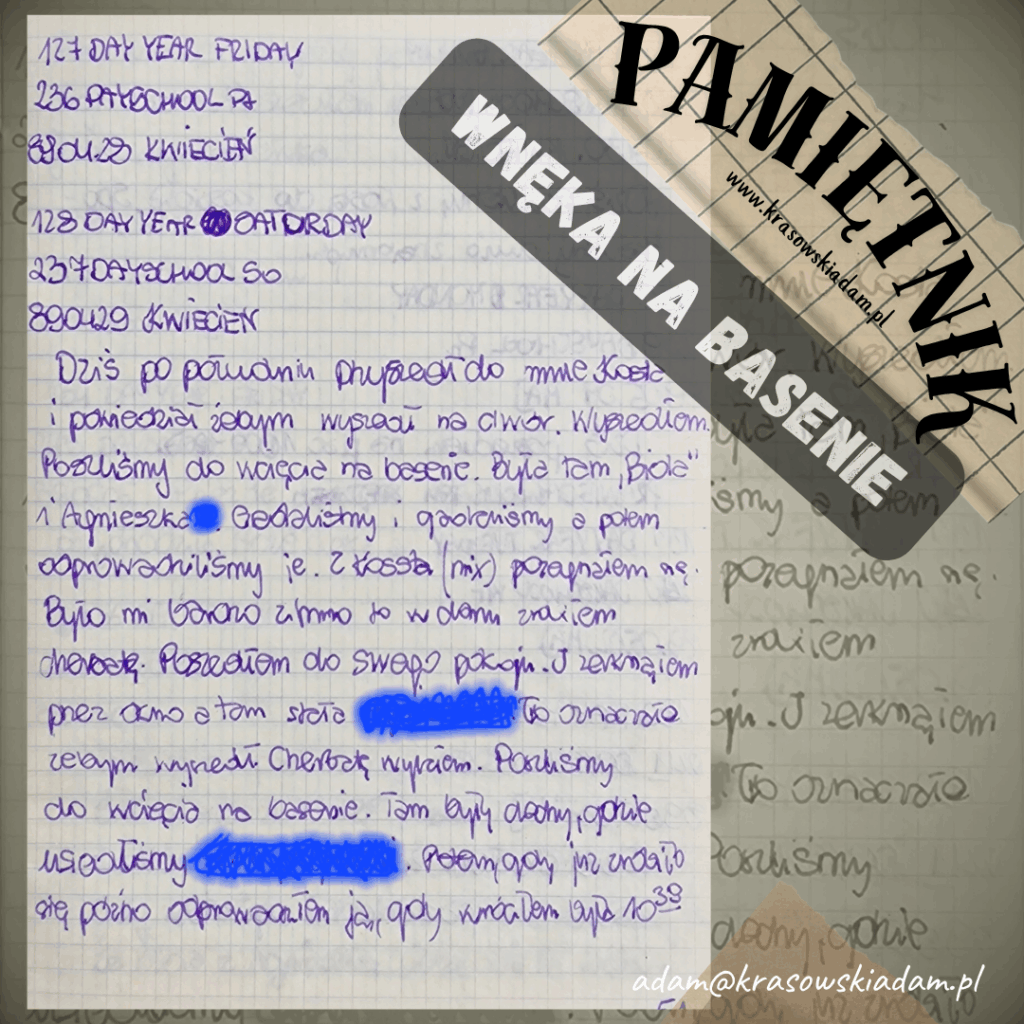 127 DAY YEAR FRIDAY
236 DAYSCHOOL PA
890428 KWIECIEŃ
128 DAY YEAR SATURDAY
237 DAYSCHOOL SO
890429 KWIECIEŃ
Dziś po południu przyszedł do mnie
i powiedział żebym wyszedł na dwór. Wyszedłem.
Poszliśmy do wcięcia na basenie. Była tam „Biola"
i Agnieszka Siedzieliśmy i gadaliśmy a potem
odprowadziliśmy je. Z (nix) pożegnałem się.
Było mi bardzo zimno to w domu zrobiłem
cherbatę. Poszedłem do swego pokoju. I zerknąłem
przez okno a tam stała To oznaczało
żebym wyszedł Cherbatę wypiłem. Poszliśmy
do wcięcia na basenie. Tam były dechy, gdzie
usiedliśmy . Potem, gdy już zrobiło
się późno odprowadziłem ją, gdy wróciłem było 10 30
PAMIĘTNIK
www.krasowskiadam.pl
WNĘKA NA BASENIE
pożegnałem się.
zrobiłem
I zerknąłem
To oznaczało
Poszliśmy
dechy, gdzie
adam@krasowskiadam.pl